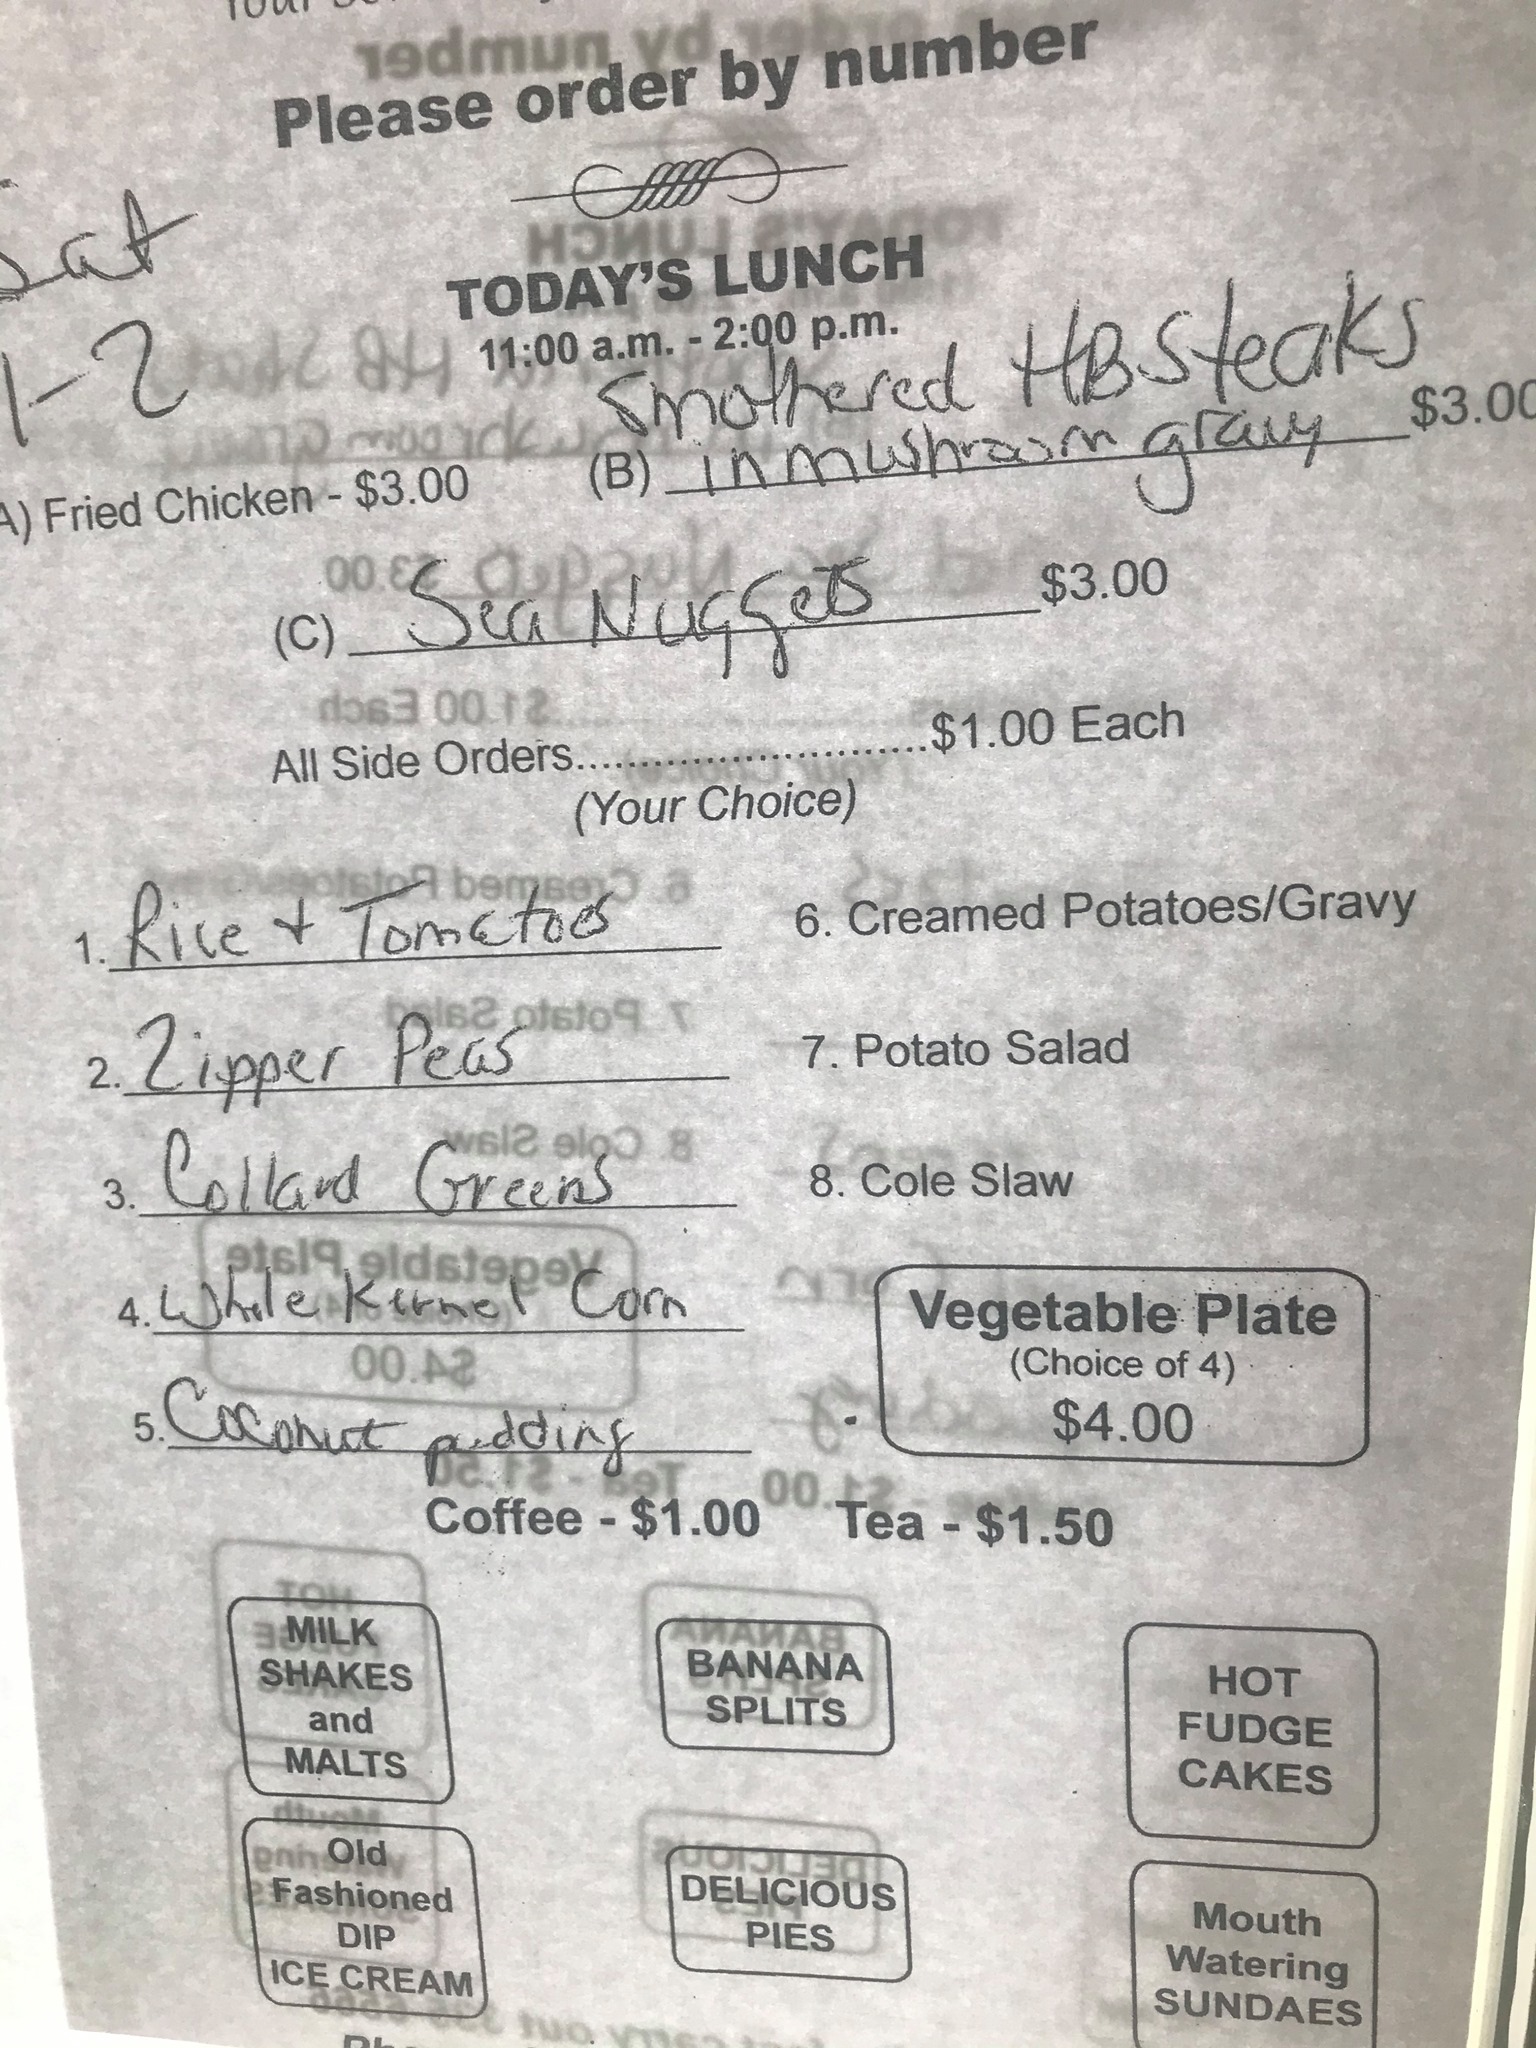 Please order by number
Sat
1-2
TODAY'S LUNCH
11:00 a.m. - 2:00 p.m.
A) Fried Chicken - $3.00
Smothered HB Steaks
(B) in mushroom gravy $3.00
(C) Sea Nuggets $3.00
All Side Orders..........................$1.00 Each
(Your Choice)
1. Rice + Tomatoes
2. Zipper Peas
3. Collard Greens
4. Whole Kernel Corn
5. Coconut pudding
6. Creamed Potatoes/Gravy
7. Potato Salad
8. Cole Slaw
Vegetable Plate
(Choice of 4)
$4.00
Coffee - $1.00 Tea - $1.50
MILK
SHAKES
and
MALTS
BANANA
SPLITS
HOT
FUDGE
CAKES
Old
Fashioned
DIP
ICE CREAM
DELICIOUS
PIES
Mouth
Watering
SUNDAES